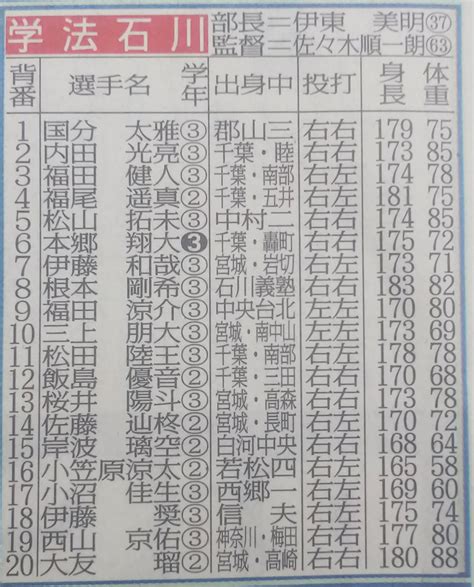 学法石川 部長=伊東 美明㊲
監督=佐々木順一朗(63)
背番 選手名 学年 出身中 投打 身長 体重
1 国分 太雅③ 郡山三 右右 179 75
2 内田 光亮③ 千葉・睦 右右 173 85
3 福田 健人③ 千葉・南部 右左 174 78
4 福尾 遥真② 千葉・五井 右左 181 75
5 松山 拓未③ 中村二 右右 174 85
6 本郷 翔大❸ 千葉・轟町 右右 175 72
7 伊藤 和哉③ 宮城・岩切 右左 173 71
8 根本 剛希③ 石川義塾 右右 183 82
9 福田 涼介② 中央台北 右左 170 80
10 三上 朋大③ 宮城・南中山 右左 173 69
11 松田 陸王③ 千葉・南部 右左 178 78
12 飯島 優音② 千葉・三田 右右 170 68
13 桜井 陽斗③ 宮城・高森 右右 178 74
14 佐藤 辿柊② 宮城・長町 右左 170 72
15 岸波 璃空② 白河中央 右右 168 64
16 小笠原涼太② 若松四 右左 165 58
17 小沼 佳生③ 西郷一 右左 169 60
18 伊藤 奨② 信夫 右左 175 74
19 西山 京佑③ 神奈川・梅田 右右 177 80
20 大友 瑠② 宮城・高崎 右右 180 88